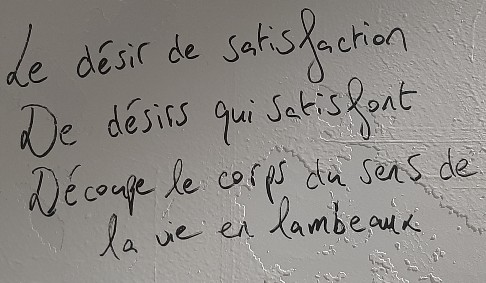 Le désir de satisfaction
De désirs qui satisfont
Découpe le corps du sens de
la vie en lambeaux